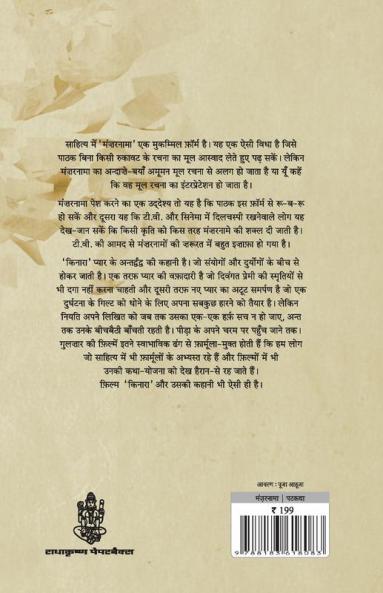 साहित्य में 'मंज़रनामा' एक मुकम्मिल फ़ॉर्म है। यह एक ऐसी विधा है जिसे
पाठक बिना किसी रुकावट के रचना का मूल आस्वाद लेते हुए पढ़ सकें। लेकिन
मंज़रनामा का अन्दाज़े-बयाँ अमूमन मूल रचना से अलग हो जाता है या यूँ कहें
कि वह मूल रचना का इंटरप्रेटेशन हो जाता है।
मंज़रनामा पेश करने का एक उद्देश्य तो यह है कि पाठक इस फ़ॉर्म से रू-ब-रू
हो सकें और दूसरा यह कि टी.वी. और सिनेमा में दिलचस्पी रखनेवाले लोग यह
देख-जान सकें कि किसी कृति को किस तरह मंज़रनामे की शक्ल दी जाती है।
टी.वी. की आमद से मंज़रनामों की ज़रूरत में बहुत इज़ाफ़ा हो गया है।
'किनारा' प्यार के अन्तर्द्वंद्व की कहानी है। जो संयोगों और दुर्योगों के बीच से
होकर जाती है। एक तरफ़ प्यार की वफ़ादारी है जो दिवंगत प्रेमी की स्मृतियों से
भी दगा नहीं करना चाहती और दूसरी तरफ़ नए प्यार का अटूट समर्पण है जो एक
दुर्घटना के गिल्ट को धोने के लिए अपना सबकुछ हारने को तैयार है। लेकिन
नियति अपने लिखित को जब तक उसका एक-एक हर्फ़ सच न हो जाए, अन्त
तक उनके बीचबैठी बाँचती रहती है। पीड़ा के अपने चरम पर पहुँच जाने तक।
गुलज़ार की फ़िल्में इतने स्वाभाविक ढंग से फ़ार्मूला-मुक्त होती हैं कि हम लोग
जो साहित्य में भी फ़ार्मूलों के अभ्यस्त रहे हैं और फ़िल्मों में भी
उनकी कथा-योजना को देख हैरान-से रह जाते हैं।
फ़िल्म 'किनारा' और उसकी कहानी भी ऐसी ही है।
आवरण : पूजा आहूजा
मंज़रनामा | पटकथा
₹ 199
9788183618083
राधाकृष्ण पेपरबैक्स